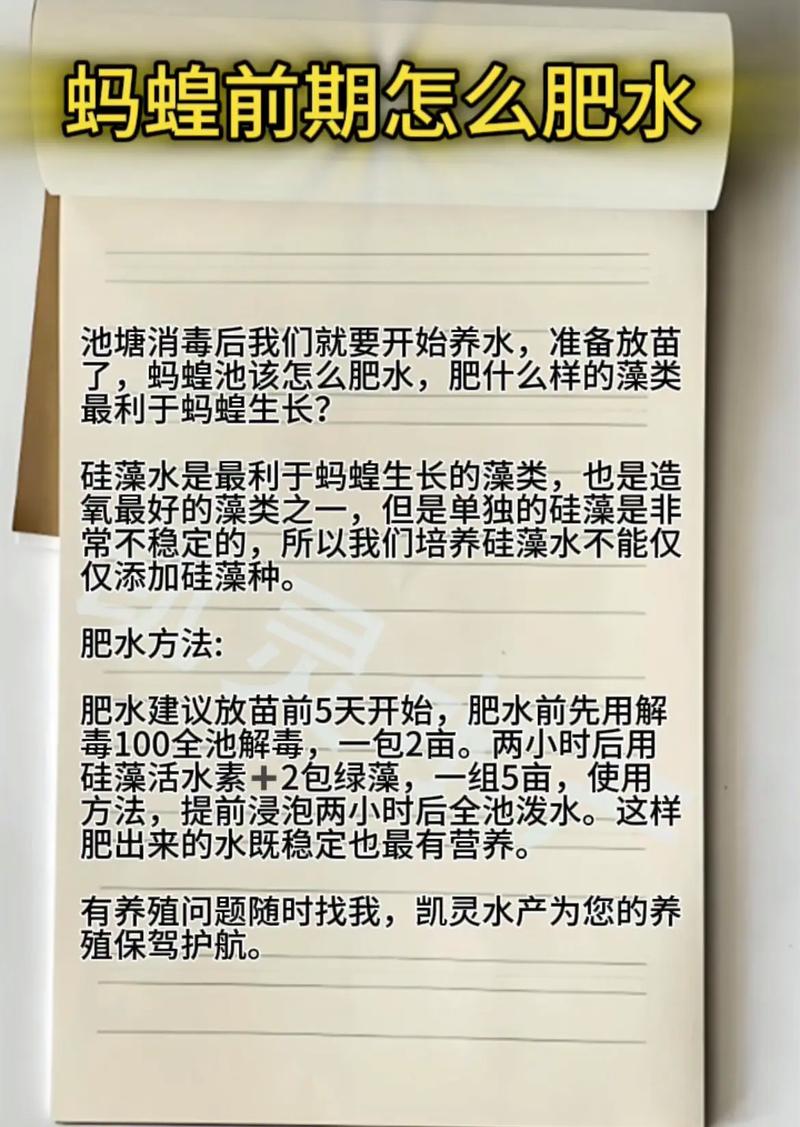 蚂蝗前期怎么肥水
池塘消毒后我们就要开始养水，准备放苗
了，蚂蝗池该怎么肥水，肥什么样的藻类
最利于蚂蝗生长？
硅藻水是最利于蚂蝗生长的藻类，也是造
氧最好的藻类之一，但是单独的硅藻是非
常不稳定的，所以我们培养硅藻水不能仅
仅添加硅藻种。
肥水方法:
肥水建议放苗前5天开始，肥水前先用解
毒100全池解毒，一包2亩。两小时后用
硅藻活水素➕2包绿藻，一组5亩，使用
方法，提前浸泡两小时后全池泼水。这样
肥出来的水既稳定也最有营养。
有养殖问题随时找我，凯灵水产为您的养
殖保驾护航。